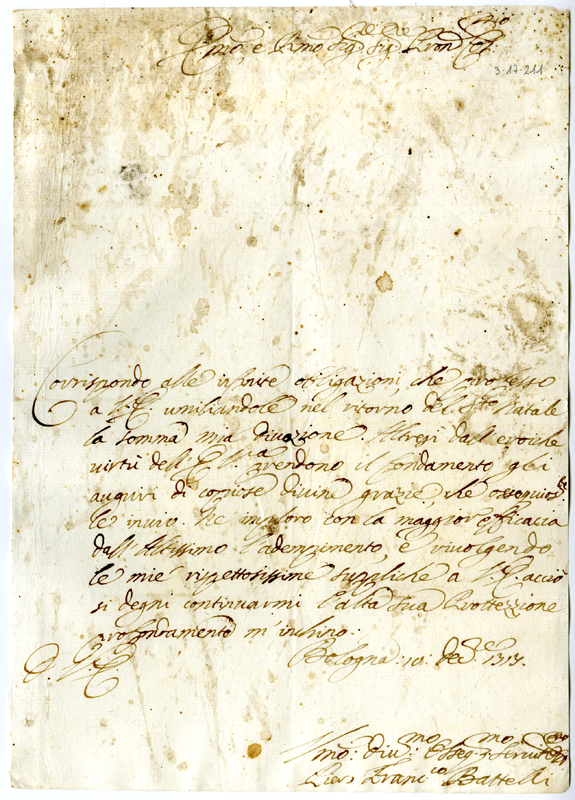 Emo, e Rmo Sig.re Sig.re Pron Col.mo
3-17-211
Corrispondo alle infinite obligazioni, che professo
a V.E. umiliandole nel ritorno del Sto Natale
la somma mia divozione. Altresì dall'eroiche
virtù dell' E.V.ra prendono il fondamento gl'
auguri di copiose divine grazie, che ossequios.te
le invio. Ne imploro con la maggior efficacia
dall'Altissimo l'adempimento, e rivolgendo
le mie rispettosissime suppliche a V.E. acciò
si degni continuarmi l'alta sua Prottezzione
profondamente m'inchino.
D. V.E.
Bologna
Vmo: Div.mo Osseq.mo Servit.
Piero Franc.co Battelli